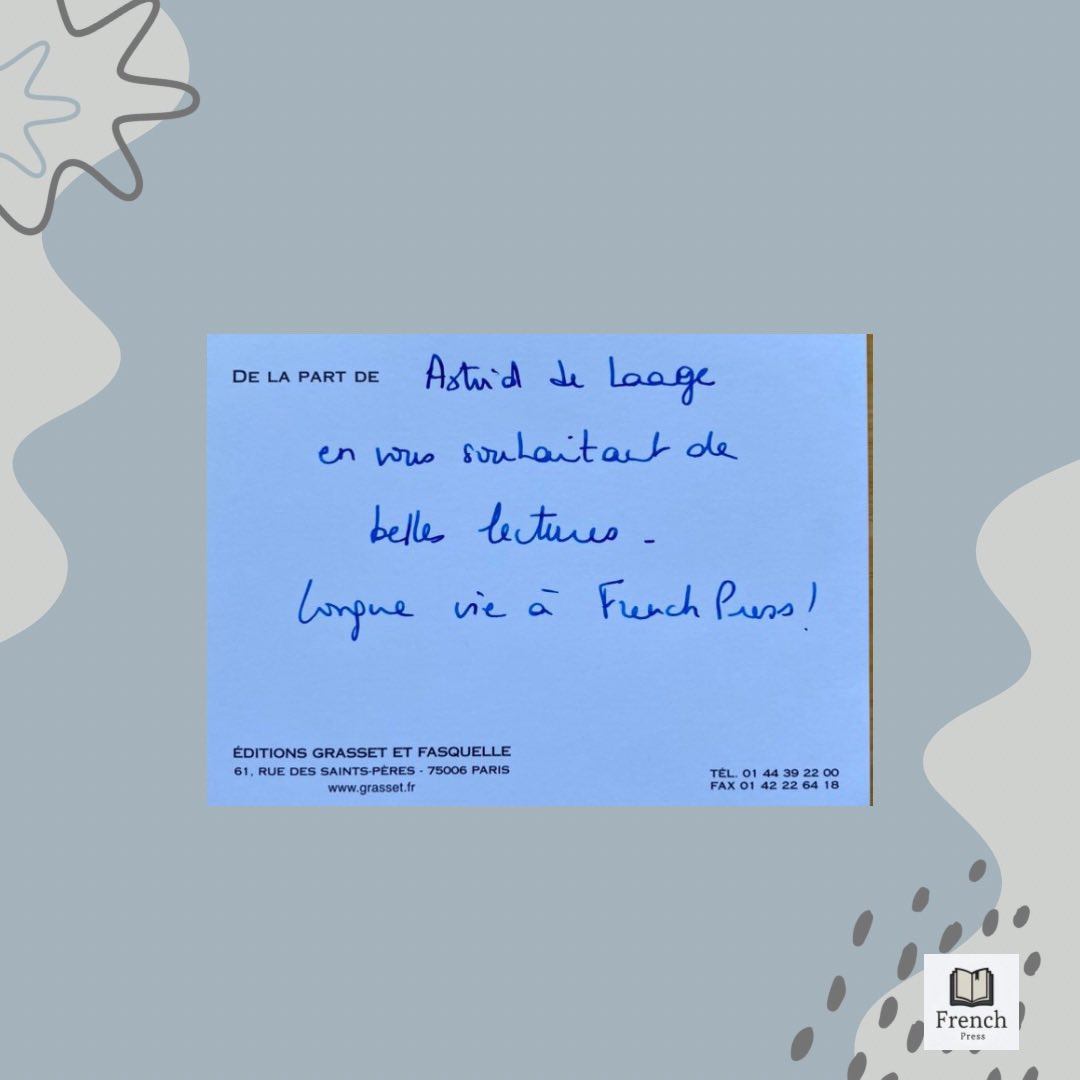 DE LA PART DE Astrid de Laage
en vous souhaitant de
belles lectures -
Longue vie à French Press!
ÉDITIONS GRASSET ET FASQUELLE
61, RUE DES SAINTS-PÈRES - 75006 PARIS
www.grasset.fr
TÉL. 01 44 39 22 00
FAX 01 42 22 64 18
French
Press